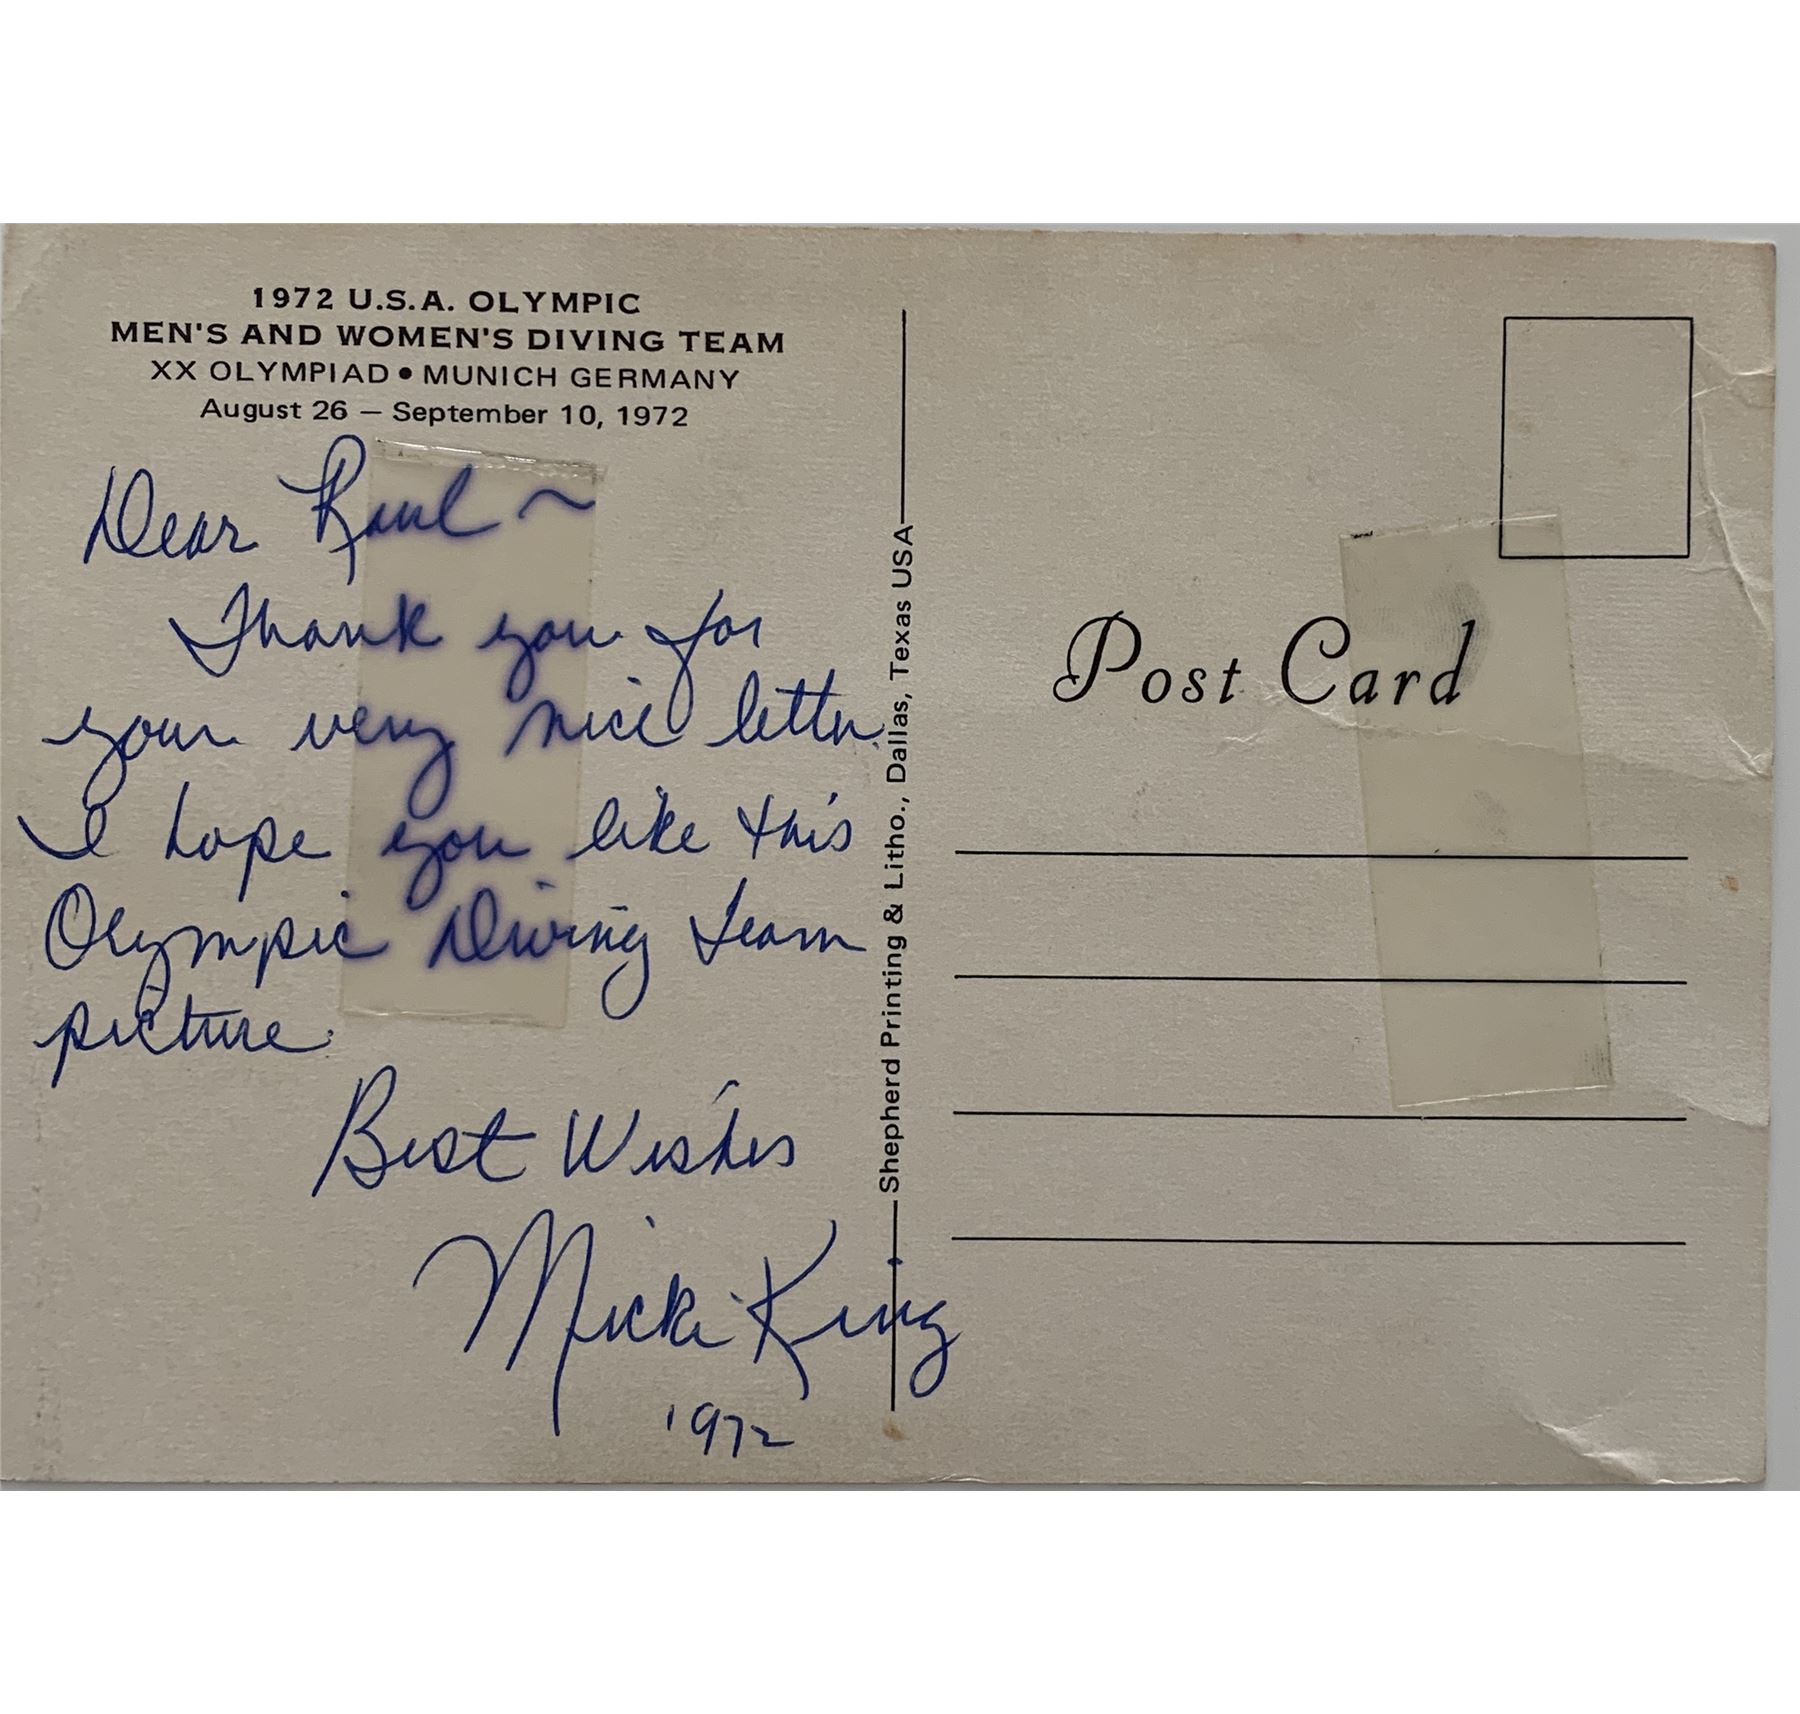 1972 U.S.A. OLYMPIC
MEN'S AND WOMEN'S DIVING TEAM
XX OLYMPIAD • MUNICH GERMANY
August 26 – September 10, 1972
Dear Raul ~
Thank you for
your very nice letter.
I hope you like this
Olympic Diving team
picture.
Best Wishes
Micki King
1972
Shepherd Printing & Litho., Dallas, Texas USA
Post Card